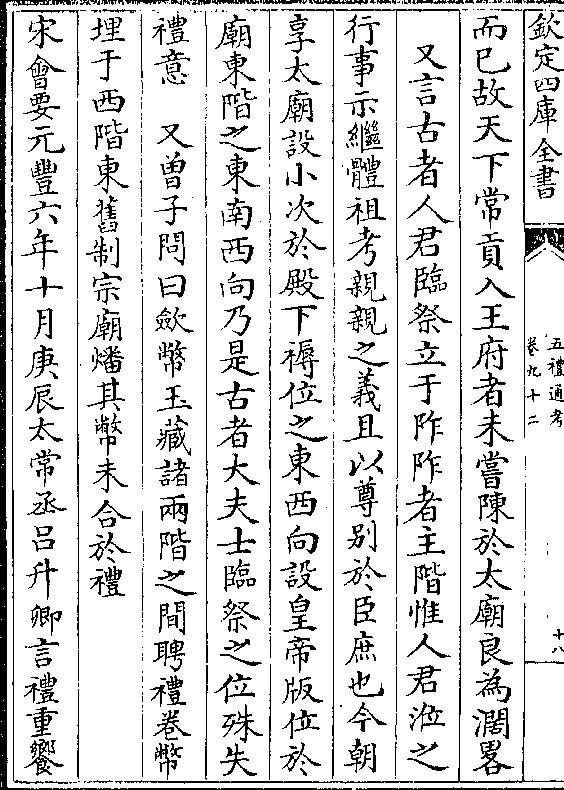 欽定四庫全書
五禮通考
卷九十二
十八
而已故天下常貢入王府者未嘗陳於太廟良為濶畧
又言古者人君臨祭立于阼阼者主階惟人君涖之
行事示繼體祖考親親之義且以尊别於臣庶也今朝
享太廟設小次於殿下褥位之東西向設皇帝版位於
廟東階之東南西向乃是古者大夫士臨祭之位殊失
禮意　又曽子問曰歛幣玉藏諸兩階之間聘禮卷幣
埋于西階東舊制宗廟燔其幣未合於禮
宋會要元豐六年十月庚辰太常丞吕升卿言禮重饗